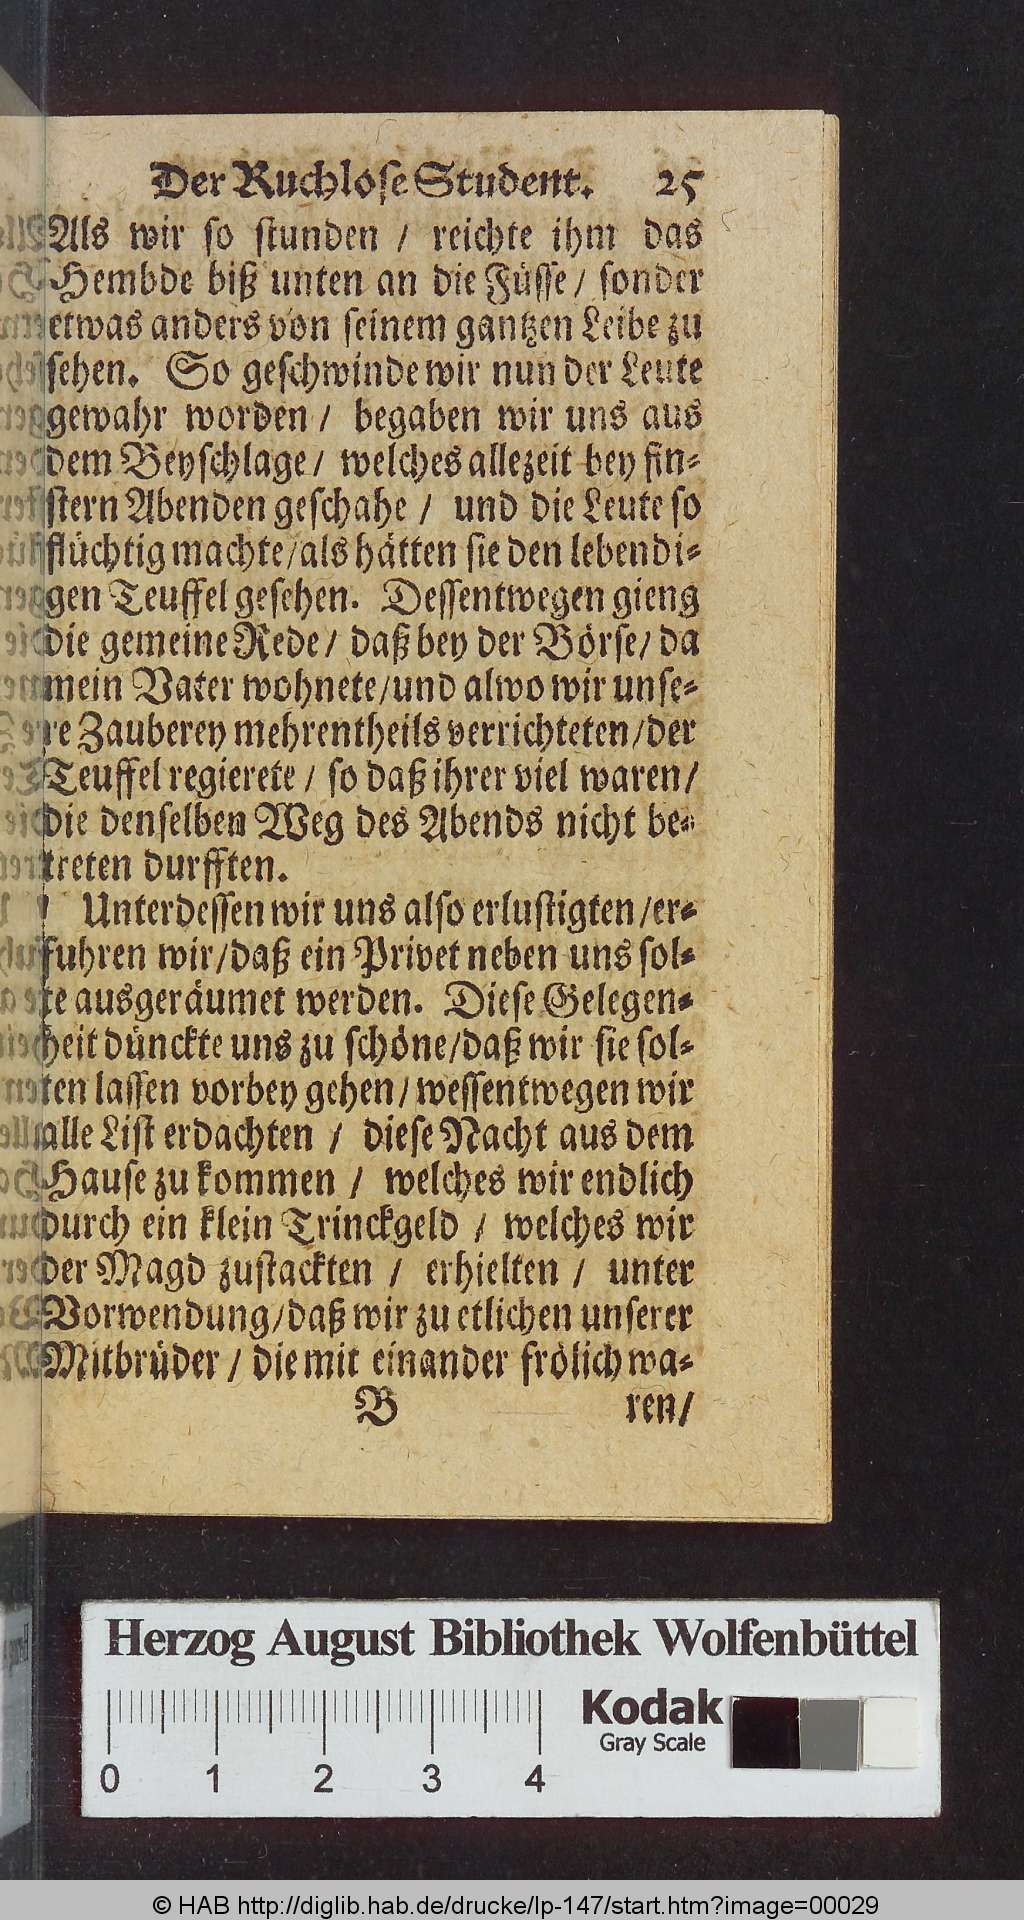 Der Ruchlose Student. 25
Als wir so stunden / reichte ihm das
Hembde biß unten an die Füsse / sonder
etwas anders von seinem gantzen Leibe zu
sehen. So geschwinde wir nun der Leute
gewahr worden / begaben wir uns aus
dem Beyschlage / welches allezeit bey fin-
stern Abenden geschahe / und die Leute so
flüchtig machte / als hätten sie den lebendi-
gen Teuffel gesehen. Dessentwegen gieng
die gemeine Rede / daß bey der Börse / da
mein Vater wohnete / und alwo wir unse-
re Zauberey mehrentheils verrichteten / der
Teuffel regierete / so daß ihrer viel waren /
die denselben Weg des Abends nicht be-
treten durfften.
Unterdessen wir uns also erlustigten / er-
fuhren wir / daß ein Privet neben uns sol-
te ausgeräumet werden. Diese Gelegen-
heit dünckte uns zu schöne / daß wir sie sol-
ten lassen vorbey gehen / wessentwegen wir
alle List erdachten / diese Nacht aus dem
Hause zu kommen / welches wir endlich
durch ein klein Trinckgeld / welches wir
der Magd zustackten / erhielten / unter
Vorwendung / daß wir zu etlichen unserer
Mitbrüder / die mit einander frölich wa-
B ren /
Herzog August Bibliothek Wolfenbüttel
Kodak
Gray Scale
0 1 2 3 4
© HAB http://diglib.hab.de/drucke/lp-147/start.htm?image=00029